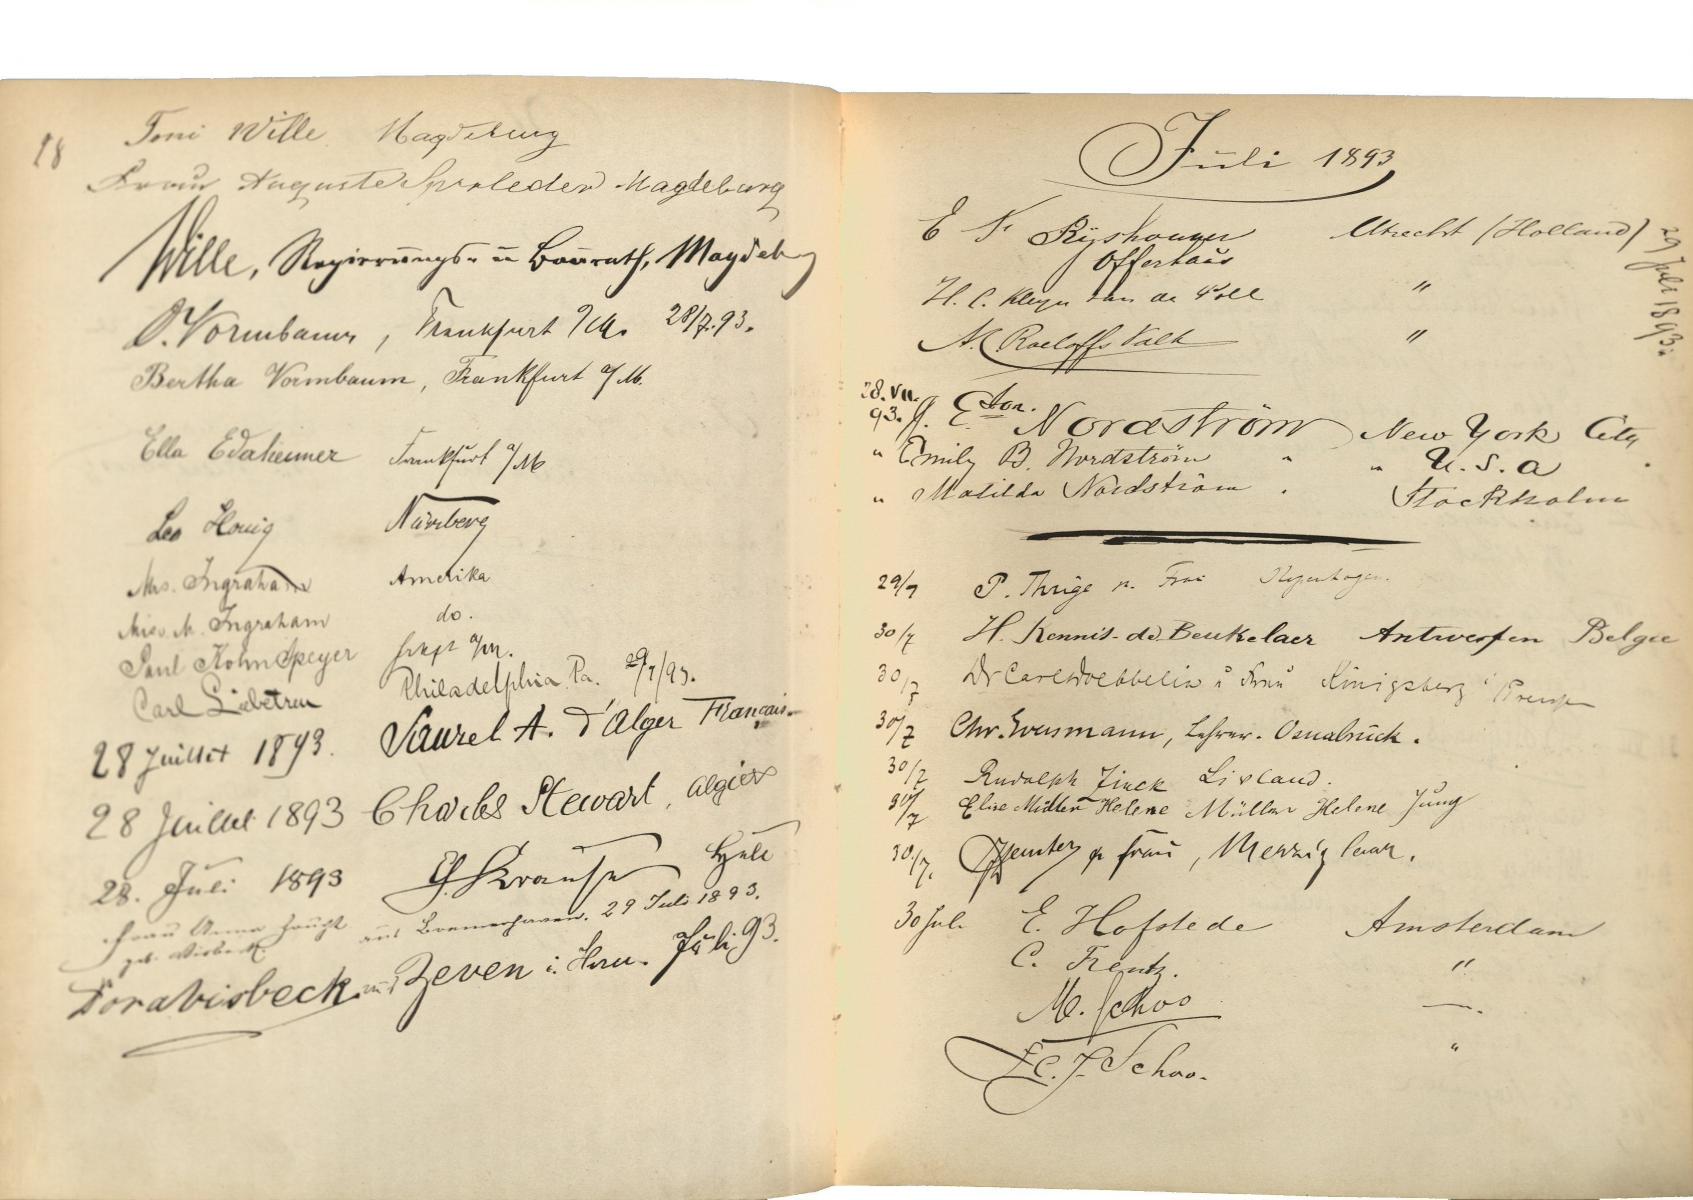 28
Toni Wille Magdeburg
Frau Auguste Sproleder Magdeburg
Wille, Regierungs- u Baurath, Magdeburg
O. Vormbaum, Frankfurt a/M. 28/7.93.
Bertha Vormbaum, Frankfurt a/M.
Ella Edaheimer Frankfurt a/M
Leo Honig Nürnberg
Mrs. Ingraham Amerika
Miss. M. Ingraham do.
Paul Kohn Speyer a/M.
Carl Liebetrau Philadelphia Pa. 29/7/93.
28 Juillet 1893. Saurel A. d'Alger Français.
28 Juillet 1893 Charles Stewart, Algiers
28. Juli 1893 Krause
Frau Anna aus Bremerhaven. 29 Juli 1893.
geb. Wisbeck
Dora Wisbeck aus Zeven i. Han. Juli 93.
Juli 1893
E Utrecht (Holland)
Offerhaus
29 Juli 1893.
H. C. Kleyn van de Poll "
N. C Roeloffs Valk "
28. VII.
93. J. E. Nordström New York City
" Emily B. Nordström " " U. S. A
" Matilda Nordström . Stockholm
29/7 P. Thrige n. Frau Kopenhagen.
30/7 H. Kennis-de Beukelaer Antwerpen Belgie
30/7 Dr Carl Doebbelin u Frau Königsberg i Preuss
30/7 Chr. Evermann, Lehrer. Osnabrück.
30/7 Rudolph Zinck Livland.
30/7 Elise Müller Helene Müller Helene Jung
30/7. u frau, Merzig Saar.
30 Juli E. Hofstede Amsterdam
C. Frentz. "
M. Schoo —.
J. Schoo. "